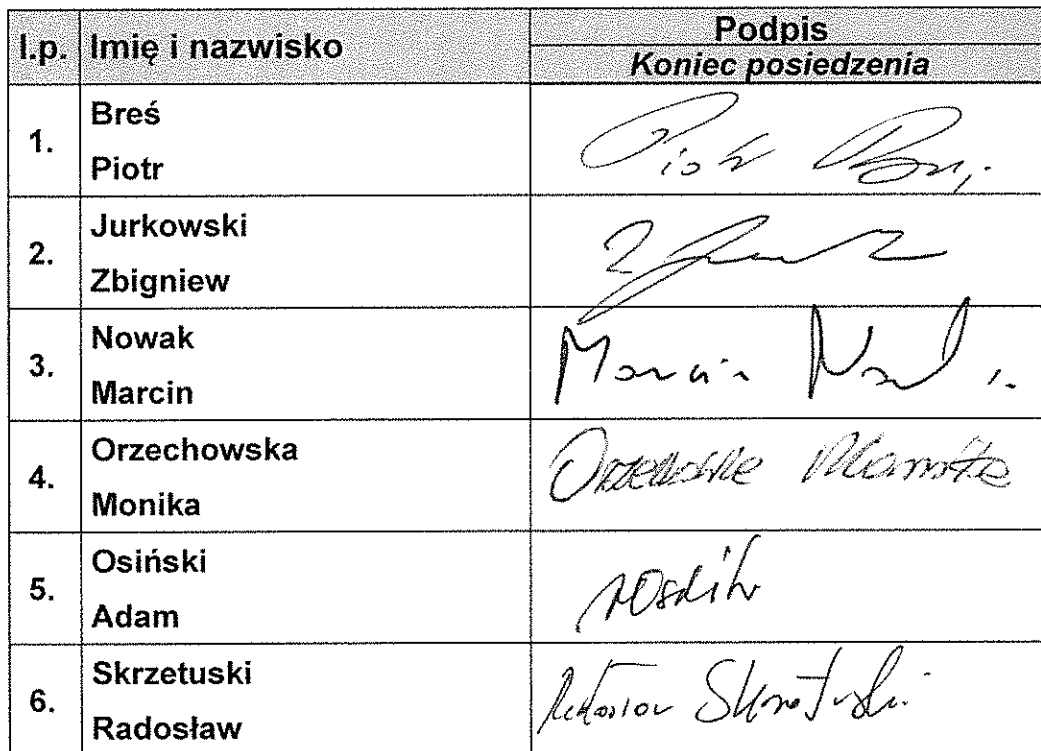 l.p. Imię i nazwisko Podpis
Koniec posiedzenia
1. Breś
Piotr
Piotr
2. Jurkowski
Zbigniew
3. Nowak
Marcin
Marcin
4. Orzechowska
Monika
Monika
5. Osiński
Adam
6. Skrzetuski
Radosław
Skrzetuski